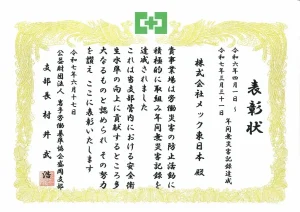 表彰状
令和六年四月一日～
年間無災害記録達成
令和七年三月三十一日
株式会社メック東日本 殿
貴事業場は労働災害の防止活動に
積極的に取組み年間無災害記録を
達成されました
これは当支部管内における安全衛
生水準の向上に貢献するところ多
大なるものと認められ その努力
を讃え ここに表彰いたします
令和七年六月十七日
公益財団法人 岩手労働基準協会盛岡支部
支部長 村井 武浩